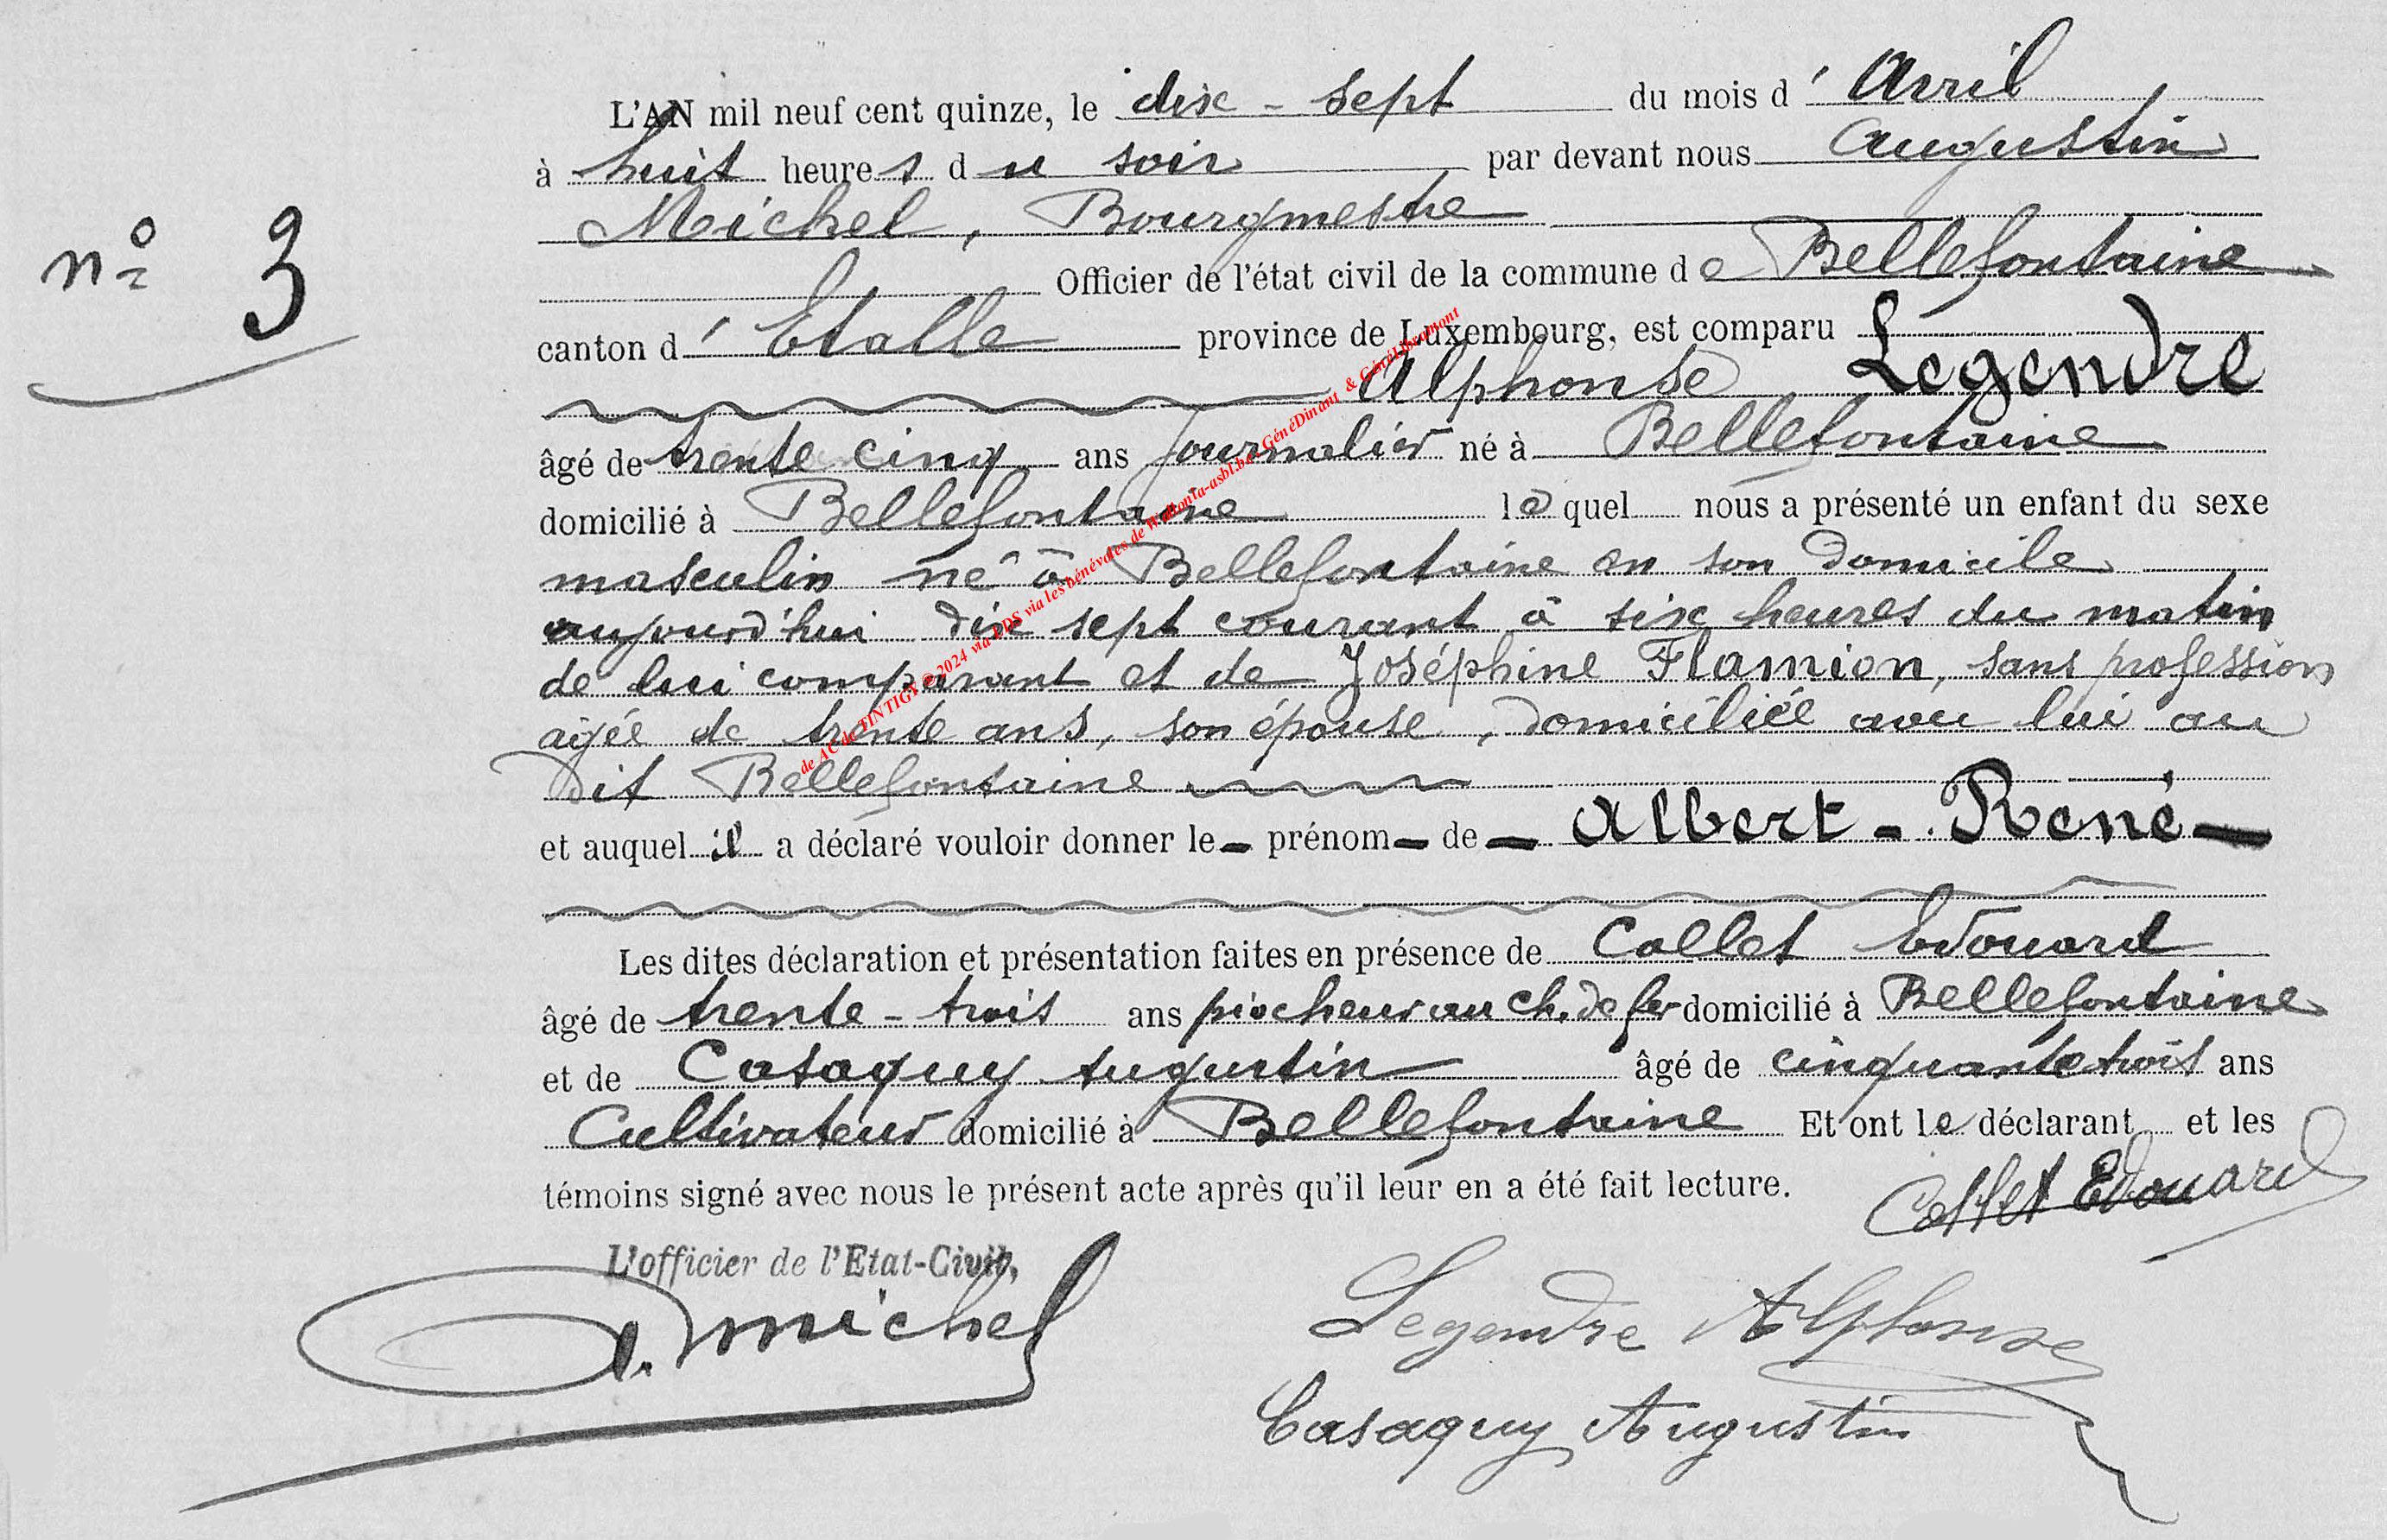 L'AN mil neuf cent quinze, le dix - sept du mois d' Avril
à huit heures du soir par devant nous Augustin
Michel, Bourgmestre
Officier de l'état civil de la commune de Bellefontaine
n° 3
canton d' Etalle province de Luxembourg, est comparu Legendre
Alphonse
âgé de trente cinq ans journalier né à Bellefontaine
domicilié à Bellefontaine lequel nous a présenté un enfant du sexe
masculin né à Bellefontaine en son domicile
aujourd'hui dix sept courant à six heures du matin
de lui comparant et de Joséphine Flamion, sans profession
agée de trente ans, son épouse, domiciliée avec lui au
dit Bellefontaine
et auquel il a déclaré vouloir donner le - prénom - de - Albert - René -
Les dites déclaration et présentation faites en présence de Collet Edouard
âgé de trente - trois ans piocheur au ch. de fer domicilié à Bellefontaine
et de Casaquy Augustin âgé de cinquante trois ans
Cultivateur domicilié à Bellefontaine Et ont le déclarant et les
témoins signé avec nous le présent acte après qu'il leur en a été fait lecture.
Collet Edouard
L'officier de l'Etat-Civil,
A. Michel
Legendre Alphonse
Casaquy Augustin
de AC de TINTIGY © 2024 via FDS via les bénévoles de Wallonia-asbl.be GénéDinant & GénéLibramont